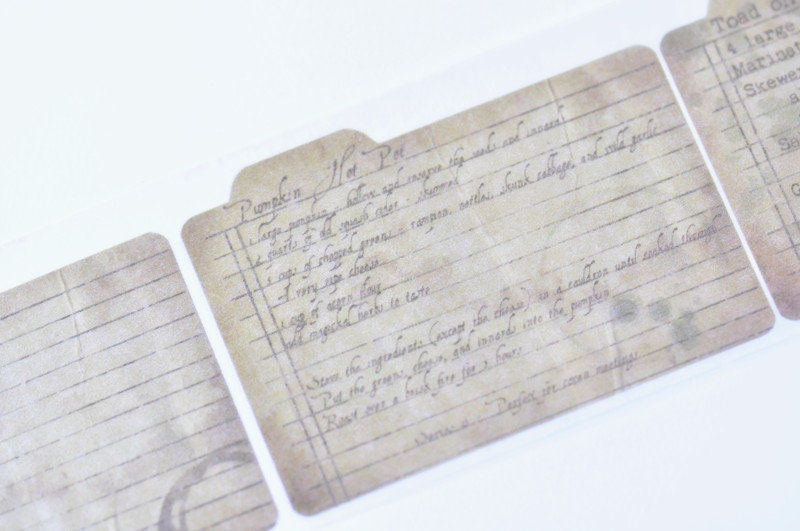 Pumpkin Hot Pot
1 large pumpkin - hollow and reserve the seeds and innards
2 quarts of old squash cider - skimmed
3 cups of chopped greens - rampion, nettles, skunk cabbage, and wild garlic
of very ripe cheese
1 cup of acorn flour
wild magickal herbs to taste
Stew the ingredients (except the cheese) in a cauldron until cooked through
Put the greens, cheese, and innards into the pumpkin
Roast over a brick fire for 3 hours
Perfect for coven meetings
Toad on
4 large
Marinat
Skewe
a
Sa